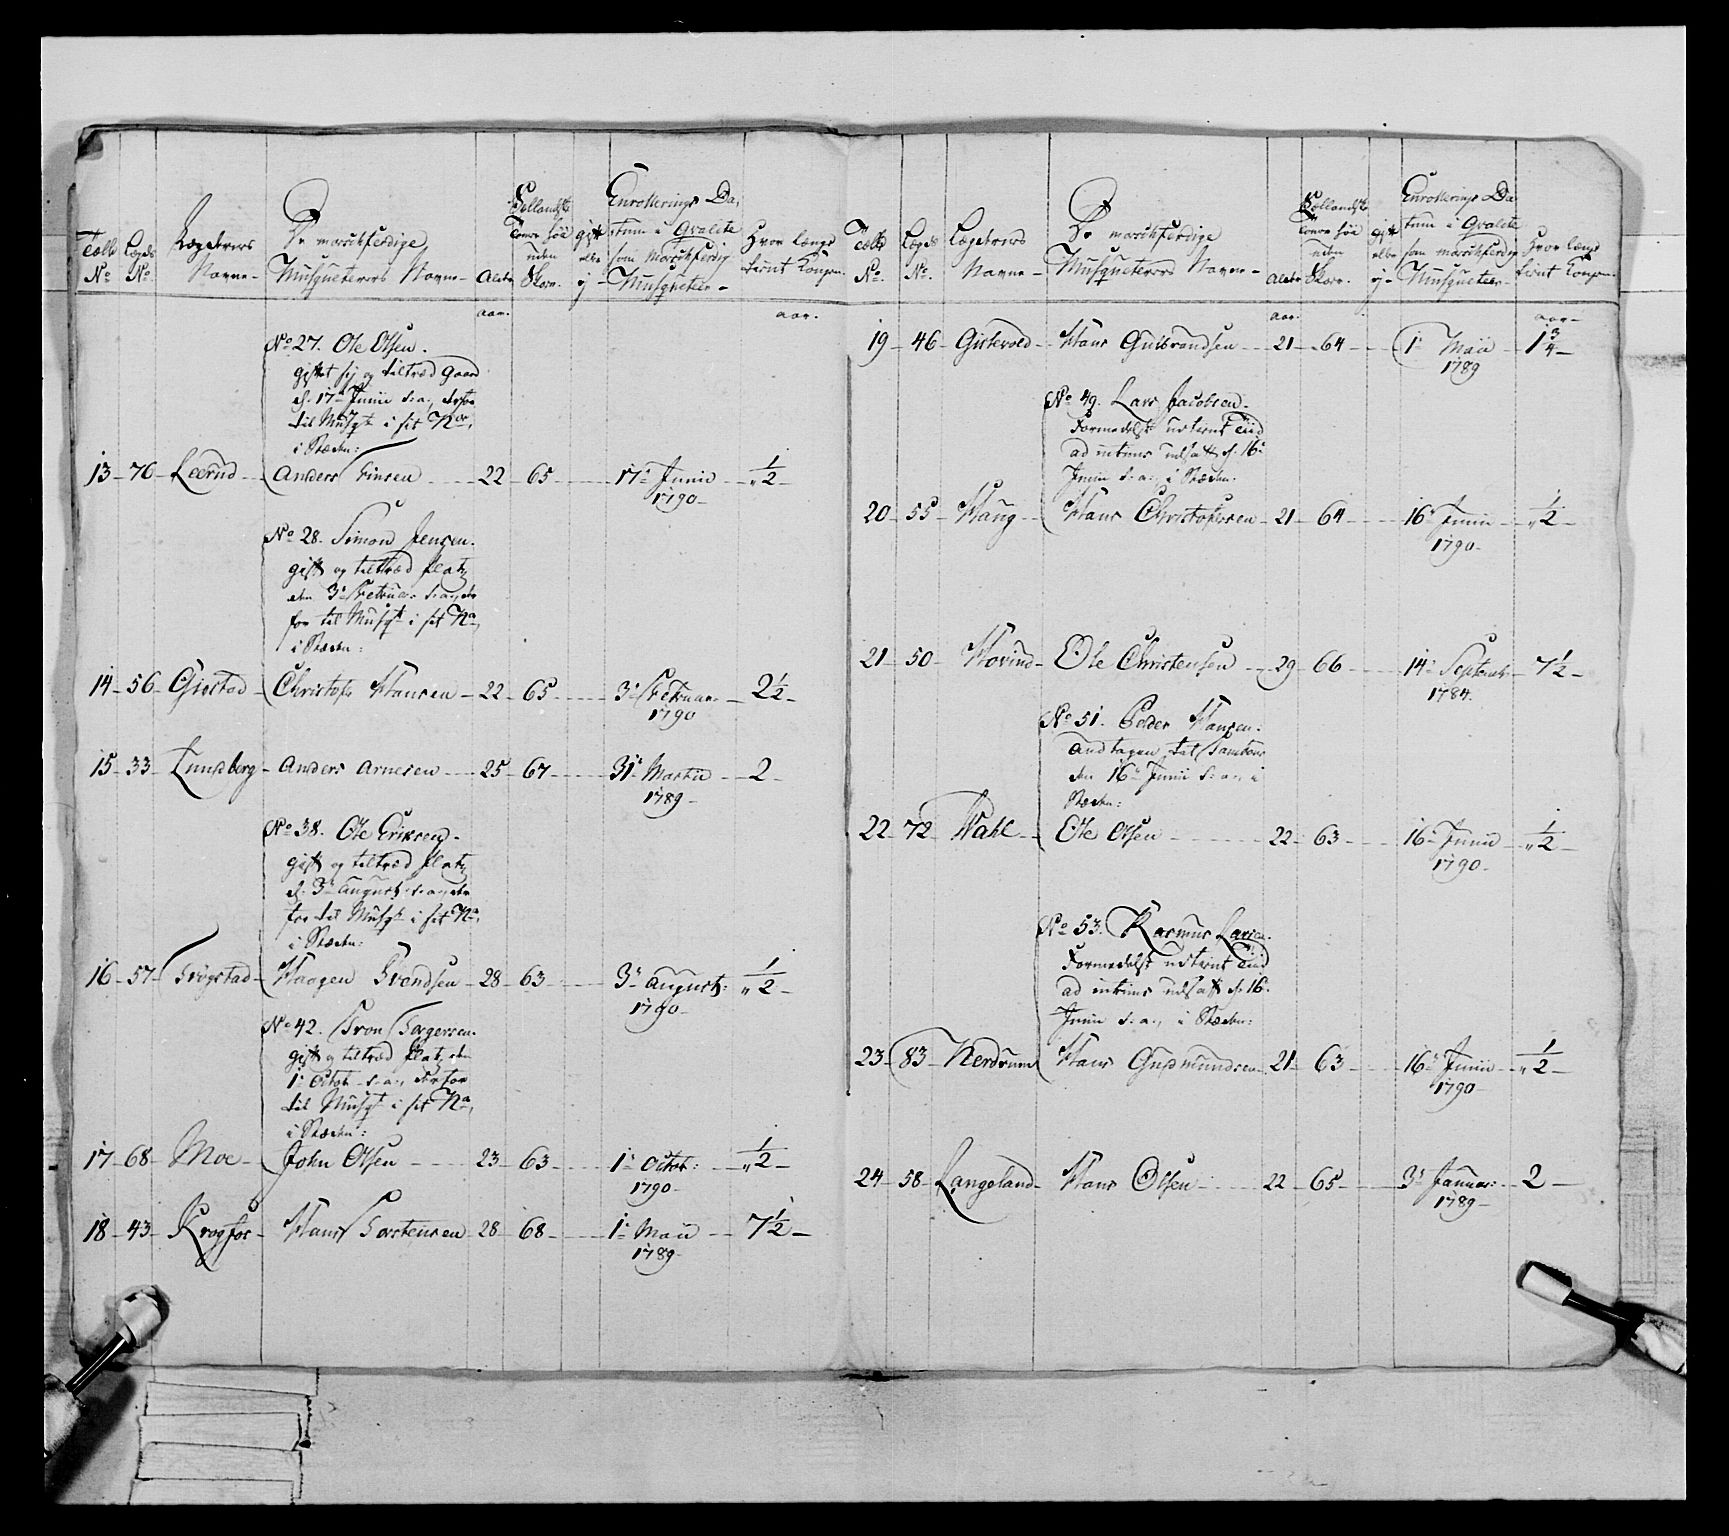 Tælle No.
Lægds No.
Lægderes Navne
De marschferdige Musqueterers Navne
Alder
Siellandske Tomer høi uden Skoe.
gift eller ej
Enrollerings Datum i Qvalite som marschferdig Musqueteer
Hvor længe tient Kongen
aar.
aar.
No 27. Ole Olsen.
giftet sig og tiltræd Gaard
d. 17de Junii d: a:, derfor
til Musqt i sit No
i Stæden:
13 76 Leerud Anders Finsen 22 65 17de Junii 1790 ½
No 28. Simon Jensen.
gift og tiltræd Platz
den 3de Februar d: a:, der
for til Musqt i sit No,
i Stæden:
14 56 Gistad Christofer Hansen 22 65 3de Februar 1790 2½
15 33 Lundberg Anders Arnesen 25 67 31te Martii 1789 2
No 38. Ole Eriksen.
gift og tiltræd Platz
d. 3de August d: a:, der
for til Musqt i sit No,
i Stæden:
16 57 Trygstad Haagen Svendsen 28 63 3de August: 1790 ½
No 42. Tron Torgersen.
gift og tiltræd Platz den
1te Octob: d: a:, derfor
til Musqt i sit No,
i Stæden:
17 68 Moe John Olsen 23 63 1te Octob: 1790 ½
18 43 Krogfos Hans Torstensen 28 68 1te Maii 1789 7½
Tælle No.
Lægds No.
Lægderes Navne
De marschferdige Musqueterers Navne
Alder
Siellandske Tomer høi uden Skoe.
gift eller ej
Enrollerings Datum i Qvalite som marschferdig Musqueteer
Hvor længe tient Kongen
aar.
aar
19 46 Gistevold Hans Gulbrandsen 21 64 1te Maii 1789 1¾
No 49. Lars Jacobsen.
Formedelst udtient Tiid
ad intrims udsatt d. 16de
Junii d: a:, i Stæden:
20 55 Haug Hans Christofersen 21 64 16de Junii 1790 ½
21 50 Hovind Ole Christensen 29 66 14de Septemb: 1784. 7½
No 51. Peder Hansen:
andtagen til Tambour
den 16de Junii d: a:, i
Stæden:
22 72 Wahl Ole Olsen 22 63 16de Junii 1790 ½
No 53. Rasmus Larsen.
Formedelst udtient Tiid
ad intrims udsatt d. 16de
Junii d: a:, i Stæden:
23 83 Nerdrum Hans Gudmundsen 21 63 16de Junii 1790 ½
24 58 Langeland Hans Olsen 22 65 3de Januar: 1789 2